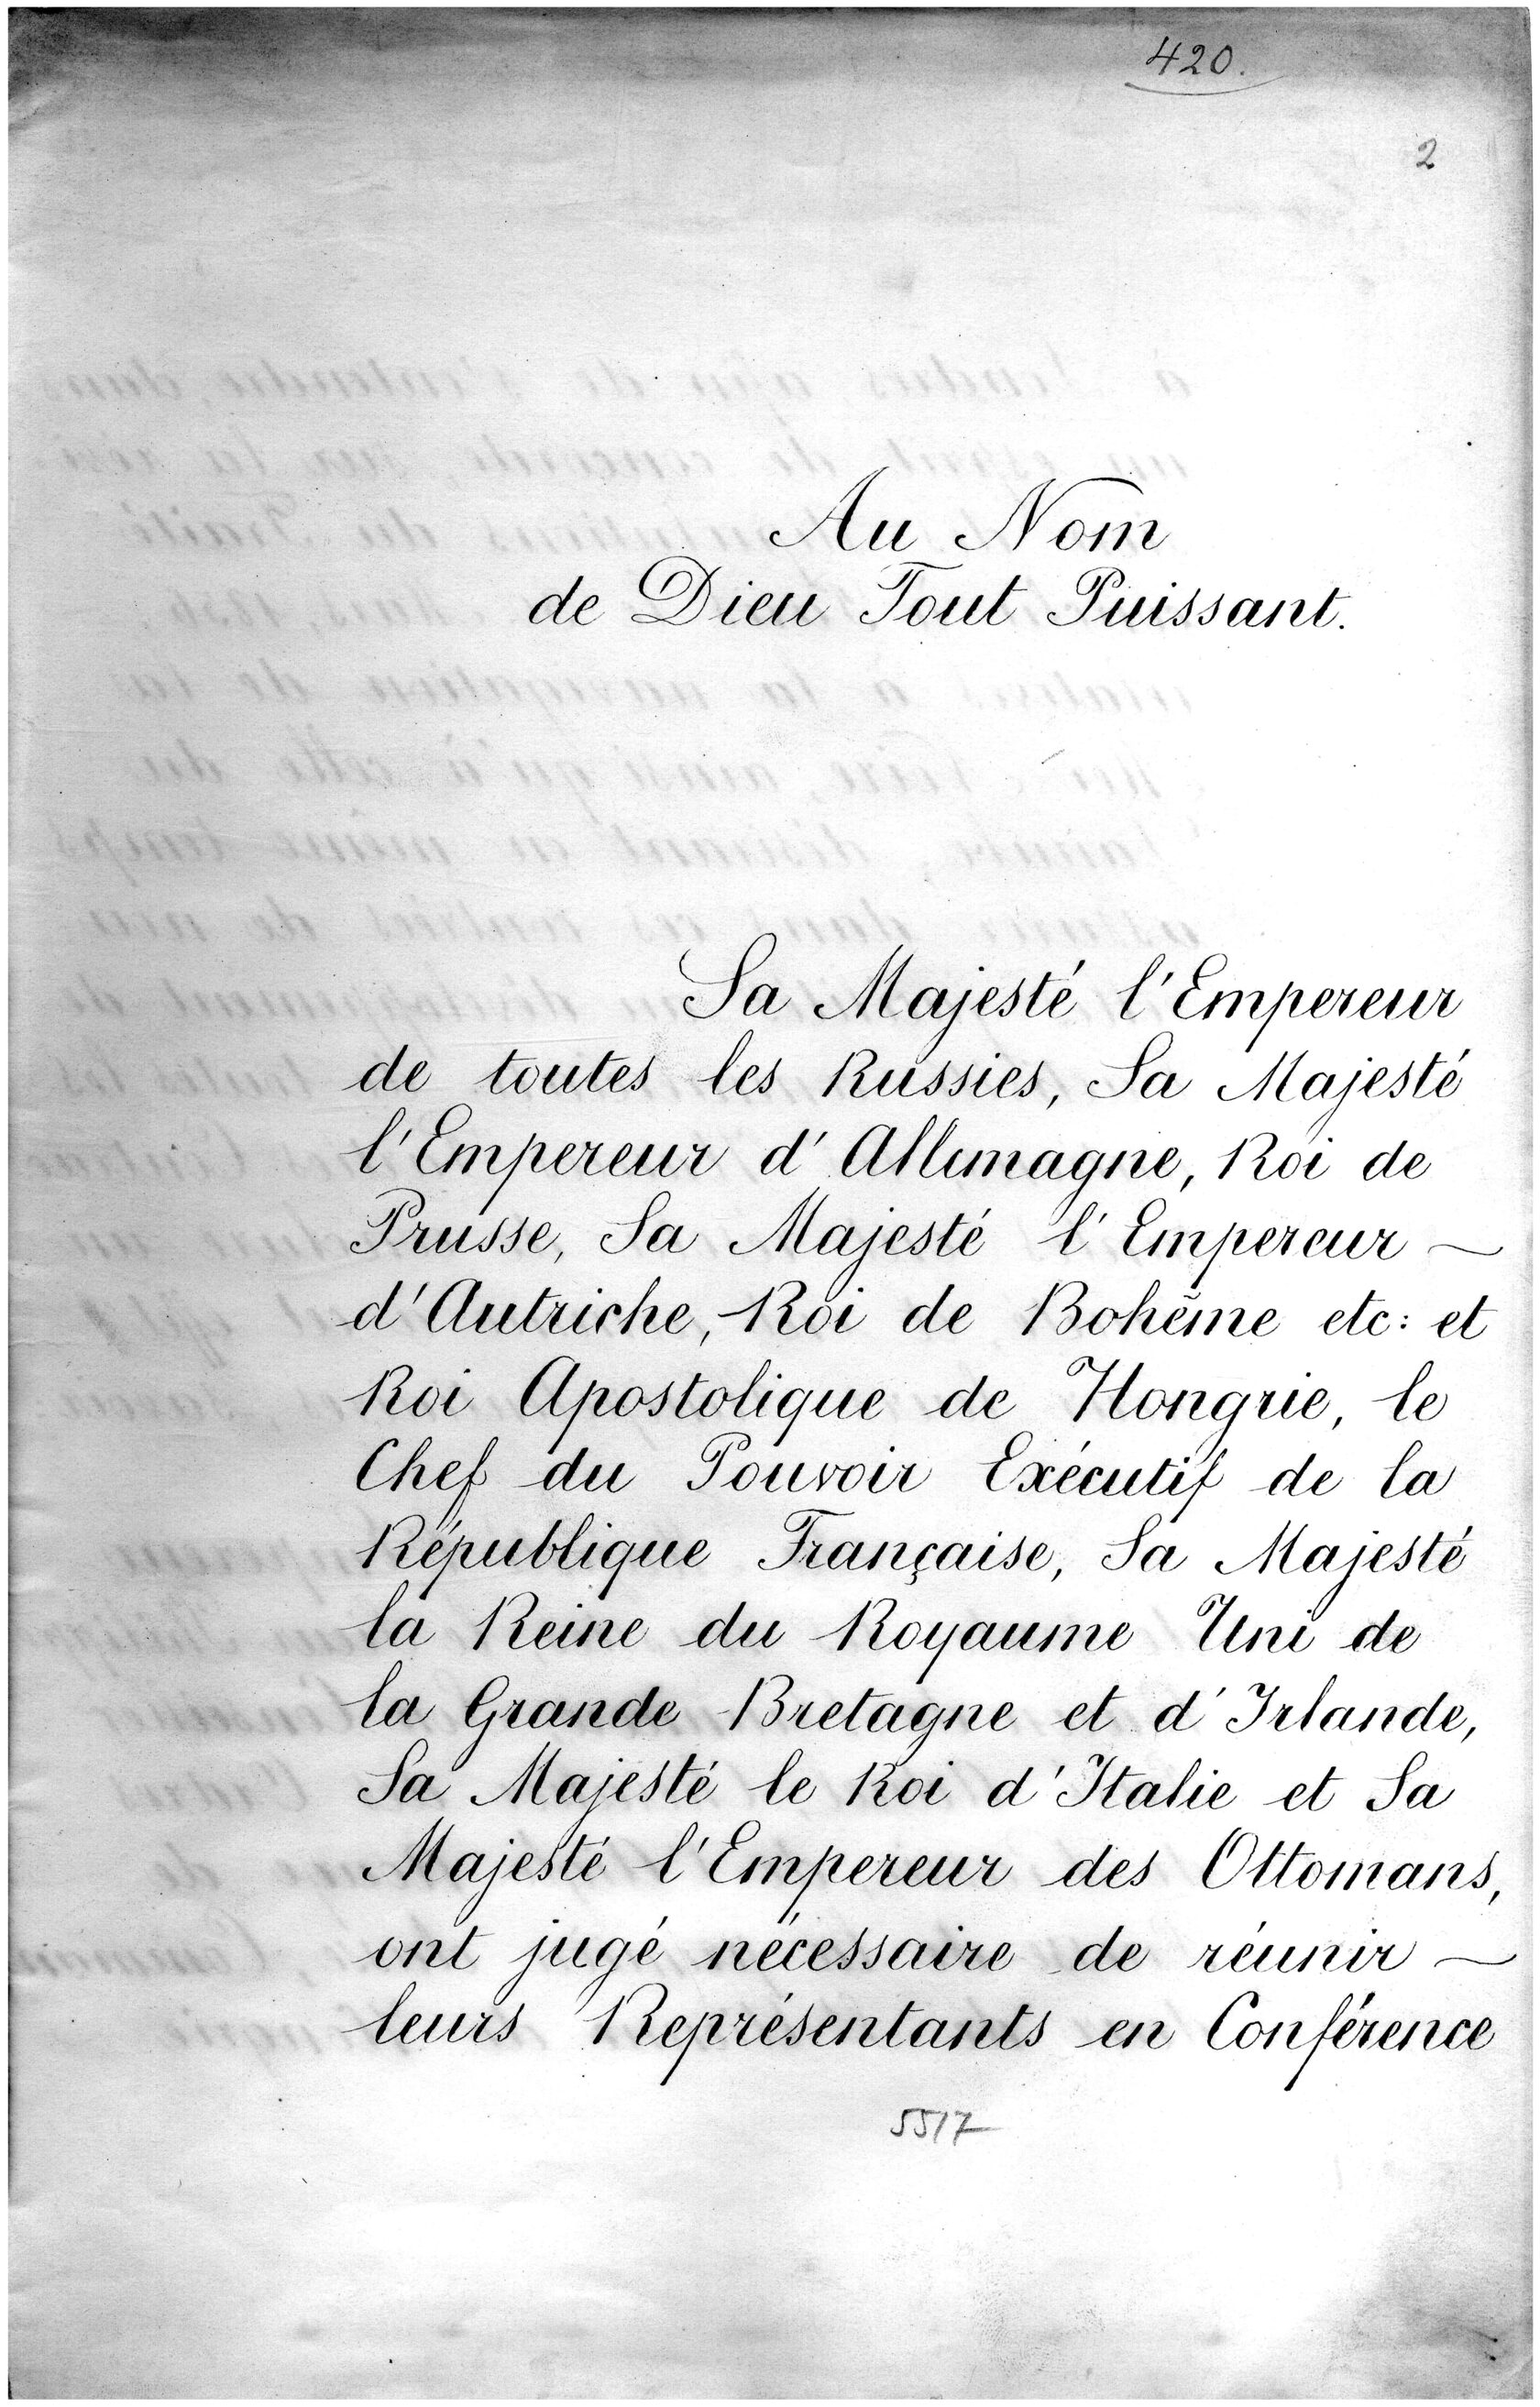 420.
2
Au Nom
de Dieu Tout Puissant.
Sa Majesté l'Empereur
de toutes les Russies, Sa Majesté
l'Empereur d'Allemagne, Roi de
Prusse, Sa Majesté l'Empereur —
d'Autriche, Roi de Bohême etc: et
Roi Apostolique de Hongrie, le
Chef du Pouvoir Exécutif de la
République Française, Sa Majesté
la Reine du Royaume Uni de
la Grande Bretagne et d'Irlande,
Sa Majesté le Roi d'Italie et Sa
Majesté l'Empereur des Ottomans,
ont jugé nécessaire de réunir —
leurs Représentants en Conférence
5517